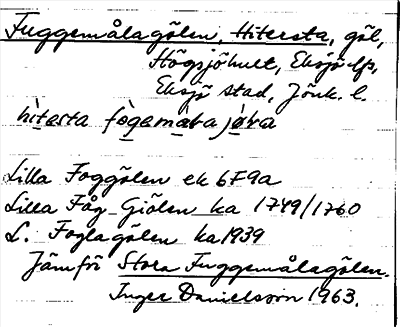 Fuggemålagölen, Hitersta, göl,
Högsjöhult, Eksjö lfs,
Eksjö stad, Jönk. l.
hìtesta fògemàla jø̀la
Lilla Foggölen ek 6F9a
Lilla Fåg Giölen ka 1749/1760
L. Foglagölen ka 1939
Jämför Stora Fuggemålagölen.
Inger Danielsson 1963.